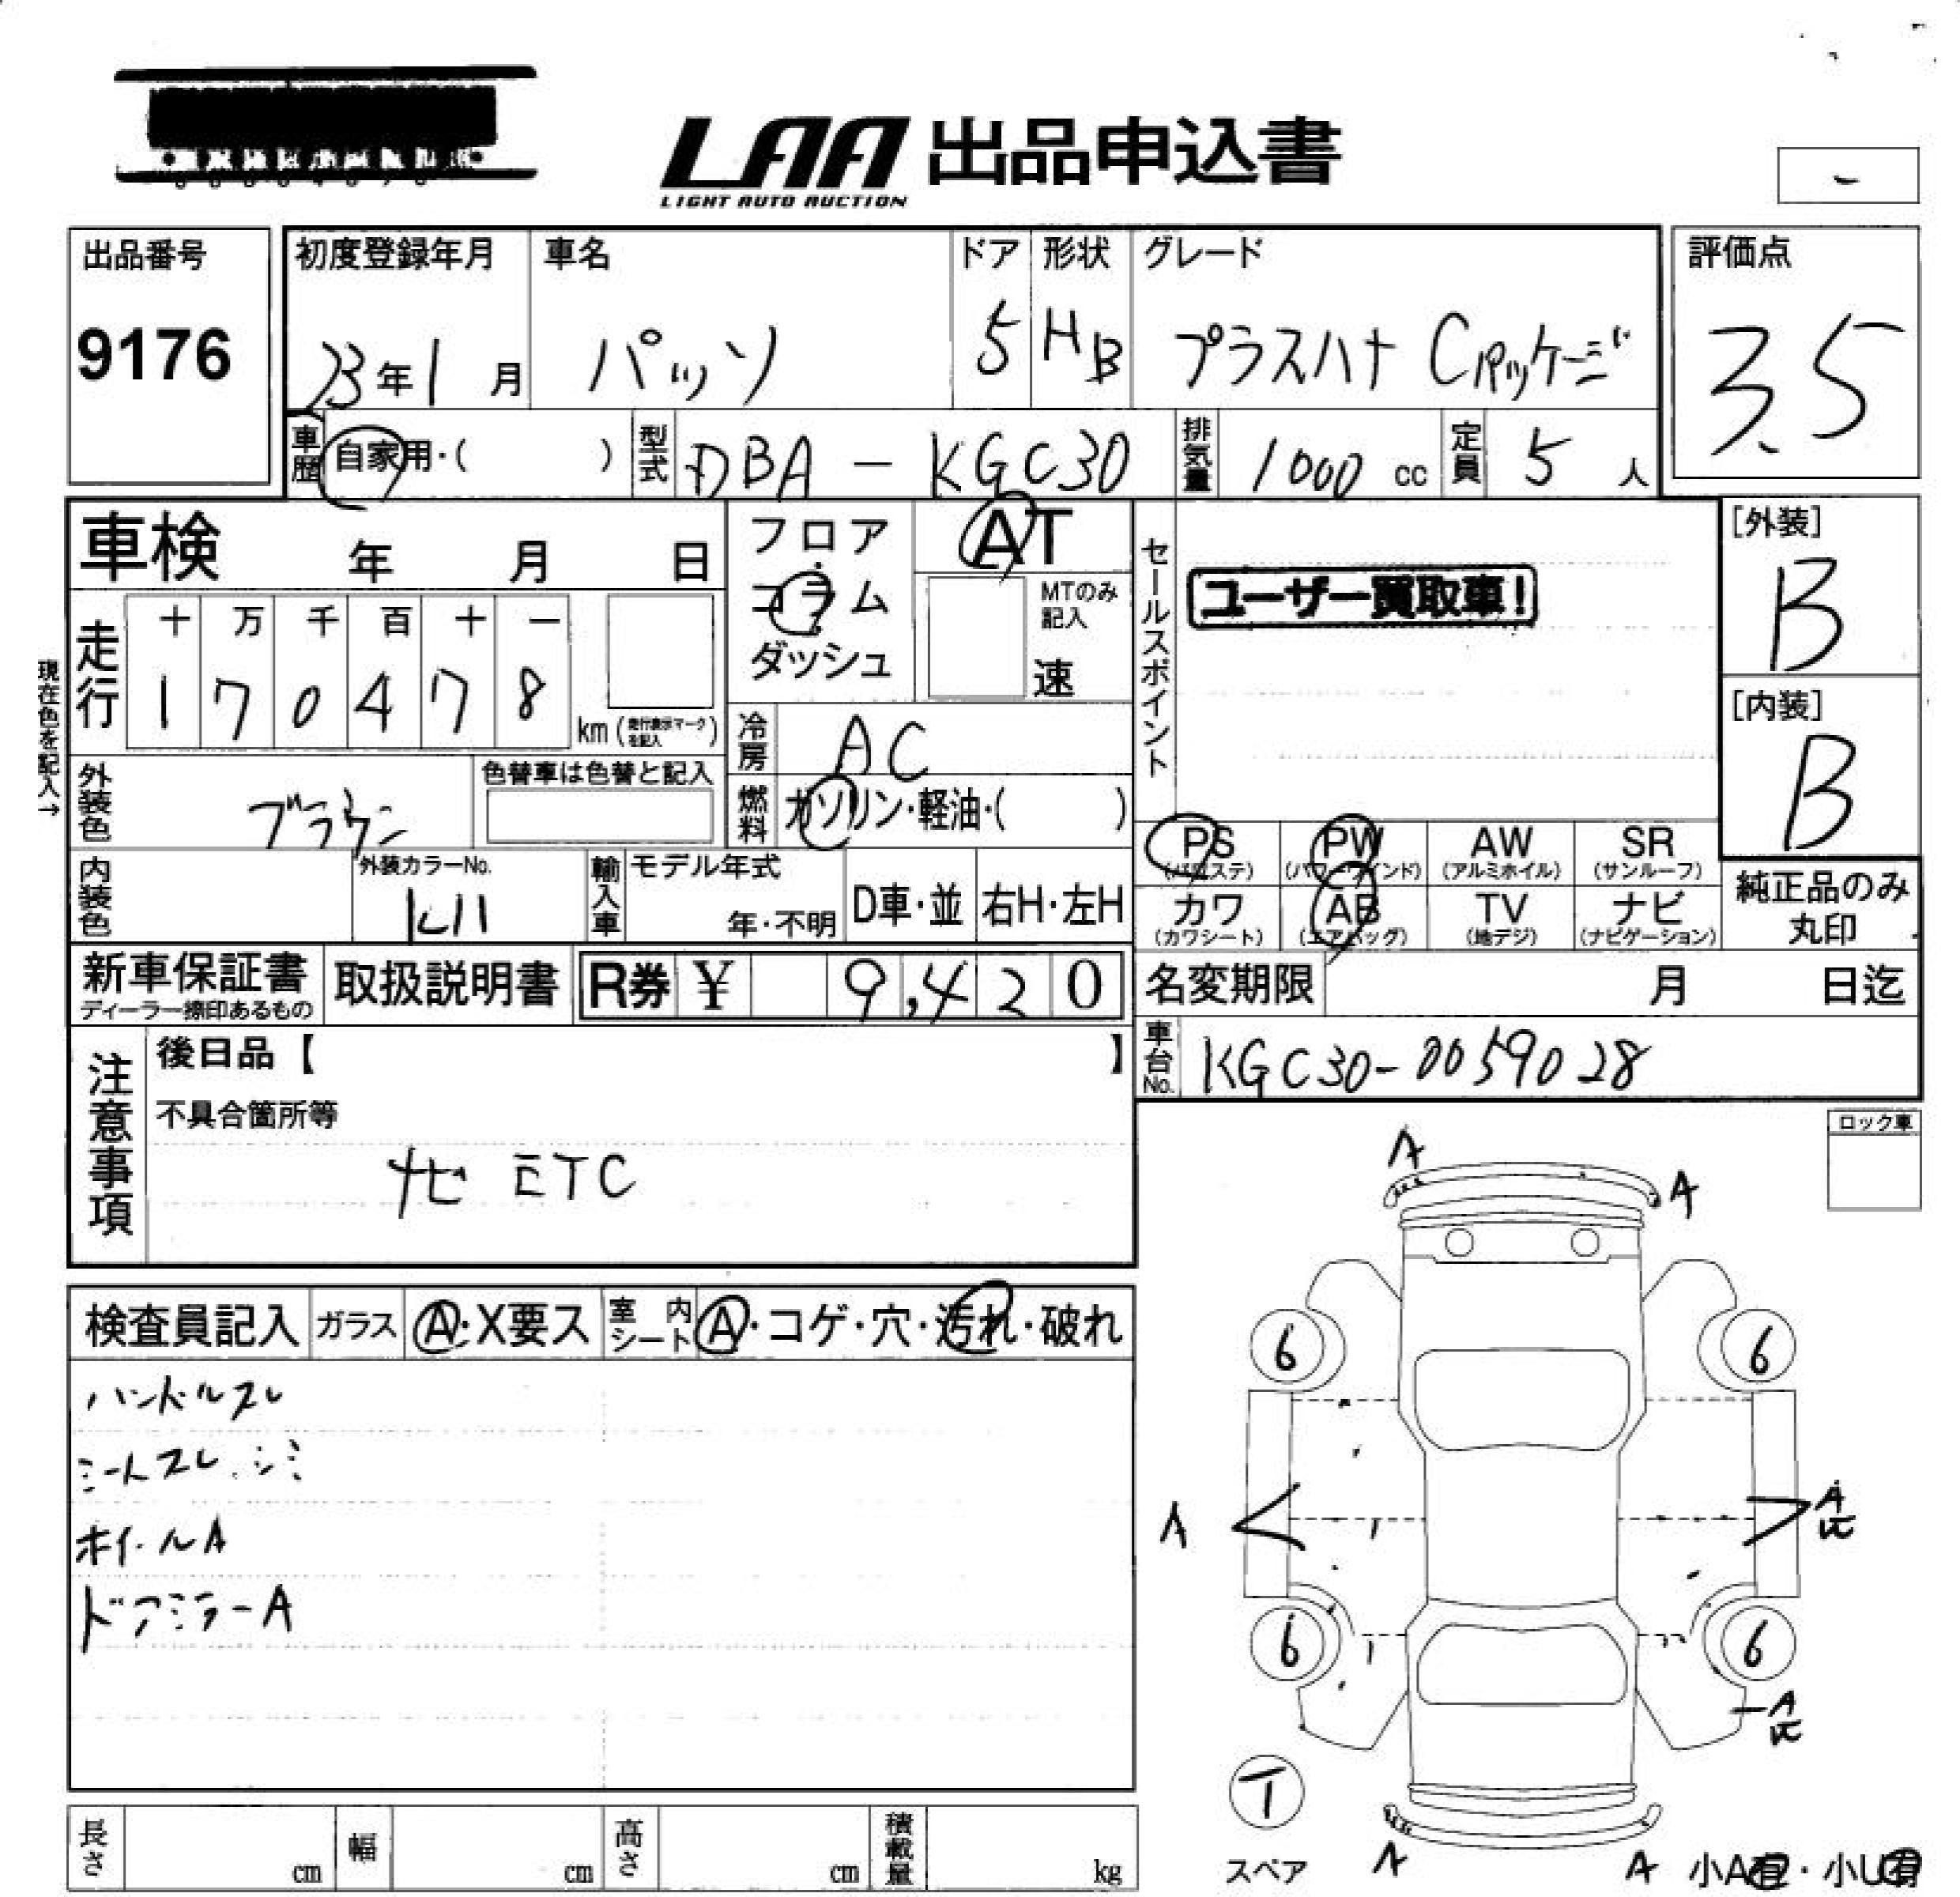 LAA 出品申込書
LIGHT AUTO AUCTION
-
出品番号
9176
初度登録年月
23年1月
車名
パッソ
ドア
5
形状
HB
グレード
プラスハナ Cパッケージ
評価点
3.5
車歴
自家用・( )
型式
DBA-KGC30
排気量
1000 cc
定員
5 人
車検 年 月 日
フロア
コラム
ダッシュ
AT
MTのみ
記入
速
セールスポイント
ユーザー買取車!
[外装]
B
[内装]
B
現在色を記入→
走行
十 万 千 百 十 一
1 7 0 4 7 8
km (走行表示マークを記入)
冷房
AC
燃料
ガソリン・軽油・( )
外装色
ブラウン
色替車は色替と記入
内装色
外装カラーNo.
輸入車
モデル年式
年・不明
D車・並
右H・左H
PS
(パワステ)
PW
(パワーウインド)
AW
(アルミホイル)
SR
(サンルーフ)
カワ
(カワシート)
AB
(エアバッグ)
TV
(地デジ)
ナビ
(ナビゲーション)
純正品のみ
丸印
新車保証書
ディーラー捺印あるもの
取扱説明書
R券 ¥ 9,420
名変期限 月 日迄
車台No.
KGC30-0059028
注意事項
後日品【 】
不具合箇所等
ナビ ETC
ロック車
検査員記入
ガラス
A・X要ス
室内シート
A・コゲ・穴・汚れ・破れ
ハンドルスレ
シートスレ、シミ
ホイールA
ドアミラーA
A
A
6
6
A
A
6
6
A
T
スペア
A
A
小A有・小U有
長さ cm
幅 cm
高さ cm
積載量 kg